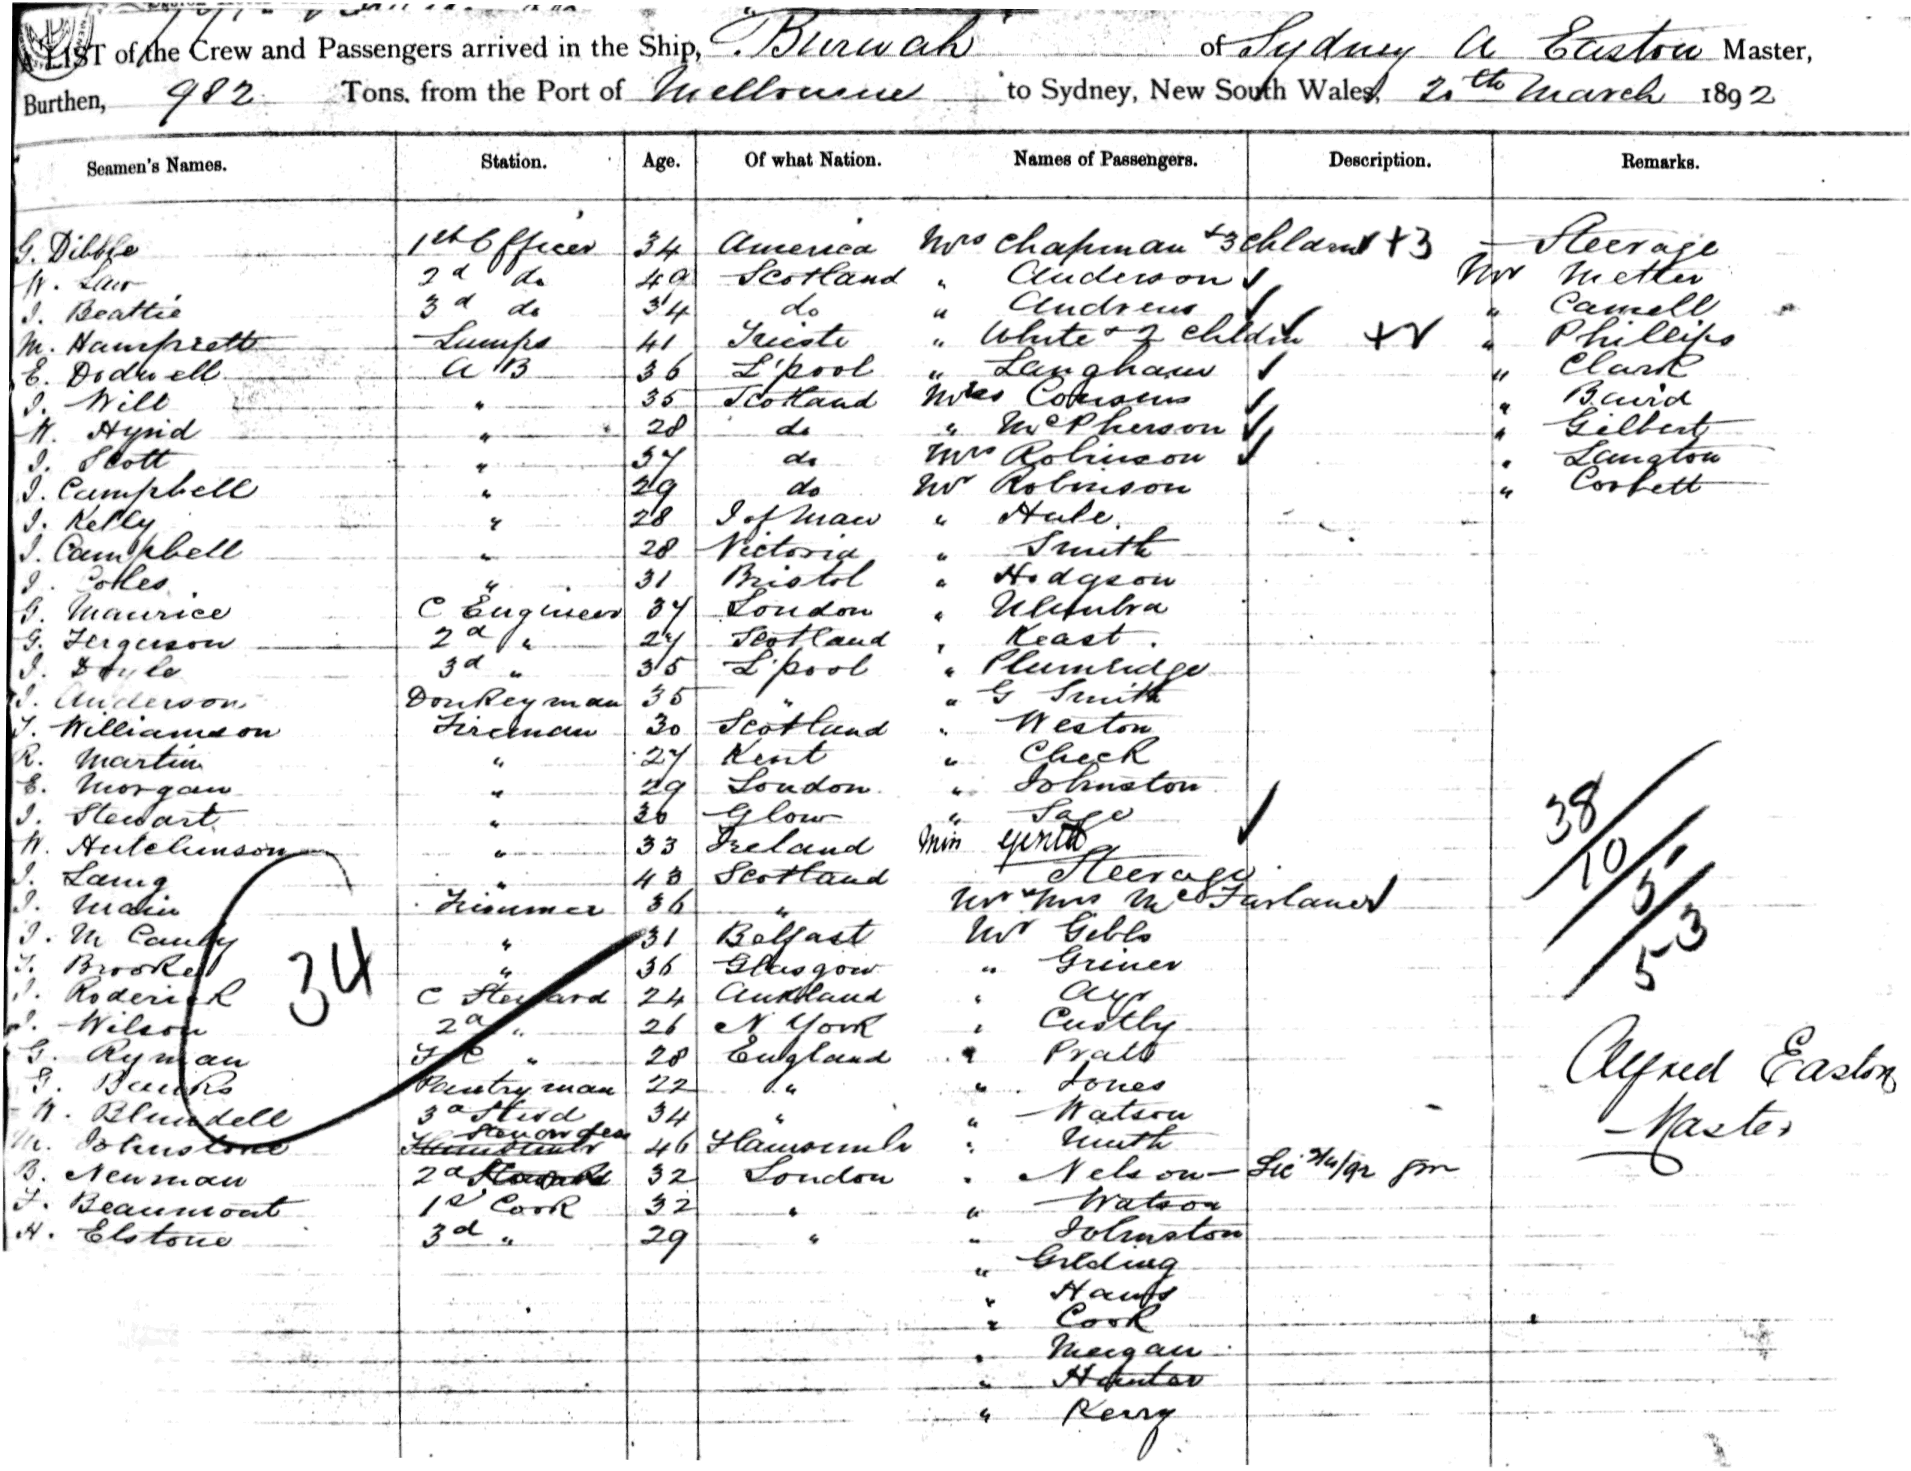 A LIST of the Crew and Passengers arrived in the Ship, Burwah of Sydney A Easton Master,
Burthen, 982 Tons. from the Port of Melbourne to Sydney, New South Wales, 20th March 1892
Seamen's Names. Station. Age. Of what Nation. Names of Passengers. Description. Remarks.
G. Dibble 1st Officer 34 America Mrs Chapman + 3 Childrn +3 Steerage
W. Law 2d do 49 Scotland " Anderson Mr Metter
J. Beattie 3d do 34 do " Andrews " Camell
M. Hamprett Lumps 41 Trieste " White + 2 Childrn + " Phillips
E. Dodwell A B 36 L'pool " Langham " Clark
J. Will " 35 Scotland Miss Cousens " Baird
W. Hynd " 28 do " McPherson " Gilbert
J. Scott " 37 do Mrs Robinson " Langton
J. Campbell " 29 do Mr Robinson " Corbett
J. Kelly " 28 I of Man " Hale
J. Campbell " 28 Victoria " Smith
J. Coles " 31 Bristol " Hodgson
G. Maurice C Engineer 37 London "
G. Ferguson 2d " 27 Scotland " Keast
J. Doyle 3d " 35 L'pool " Plumridge
J. Anderson Donkeyman 35 " " G Smith
T. Williamson Fireman 30 Scotland " Weston
R. Martin " 27 Kent " Cheek
E. Morgan " 29 London " Johnston
J. Stewart " 30 Glow " Sage
W. Hutchinson " 33 Ireland Miss
J. Laing " 43 Scotland Steerage
J. Main Trimmer 36 " Mr + Mrs McFarlane
J. McCauly " 31 Belfast Mr Gibbs
T. Brooke " 36 Glasgow " Griner
J. Roderick C Steward 24 Aukland " Ayr
J. Wilson 2d " 26 N York " Custly
G. Ryman F C " 28 England " Pratt
G. Banks Pantryman 22 " " Jones
W. Blundell 3d Stwd 34 " " Watson
M. Johnstone Stewardess 46 "
B. Newman 2d 32 London " Nelson
T. Beaumont 1st Cook 32 " " Watson
H. Elstone 3d " 29 " " Johnston
" Gilding
" Haws
" Cook
" Meigan
" Hunter
" Kerry
34
38
10
5
53
Alfred Easton
Master